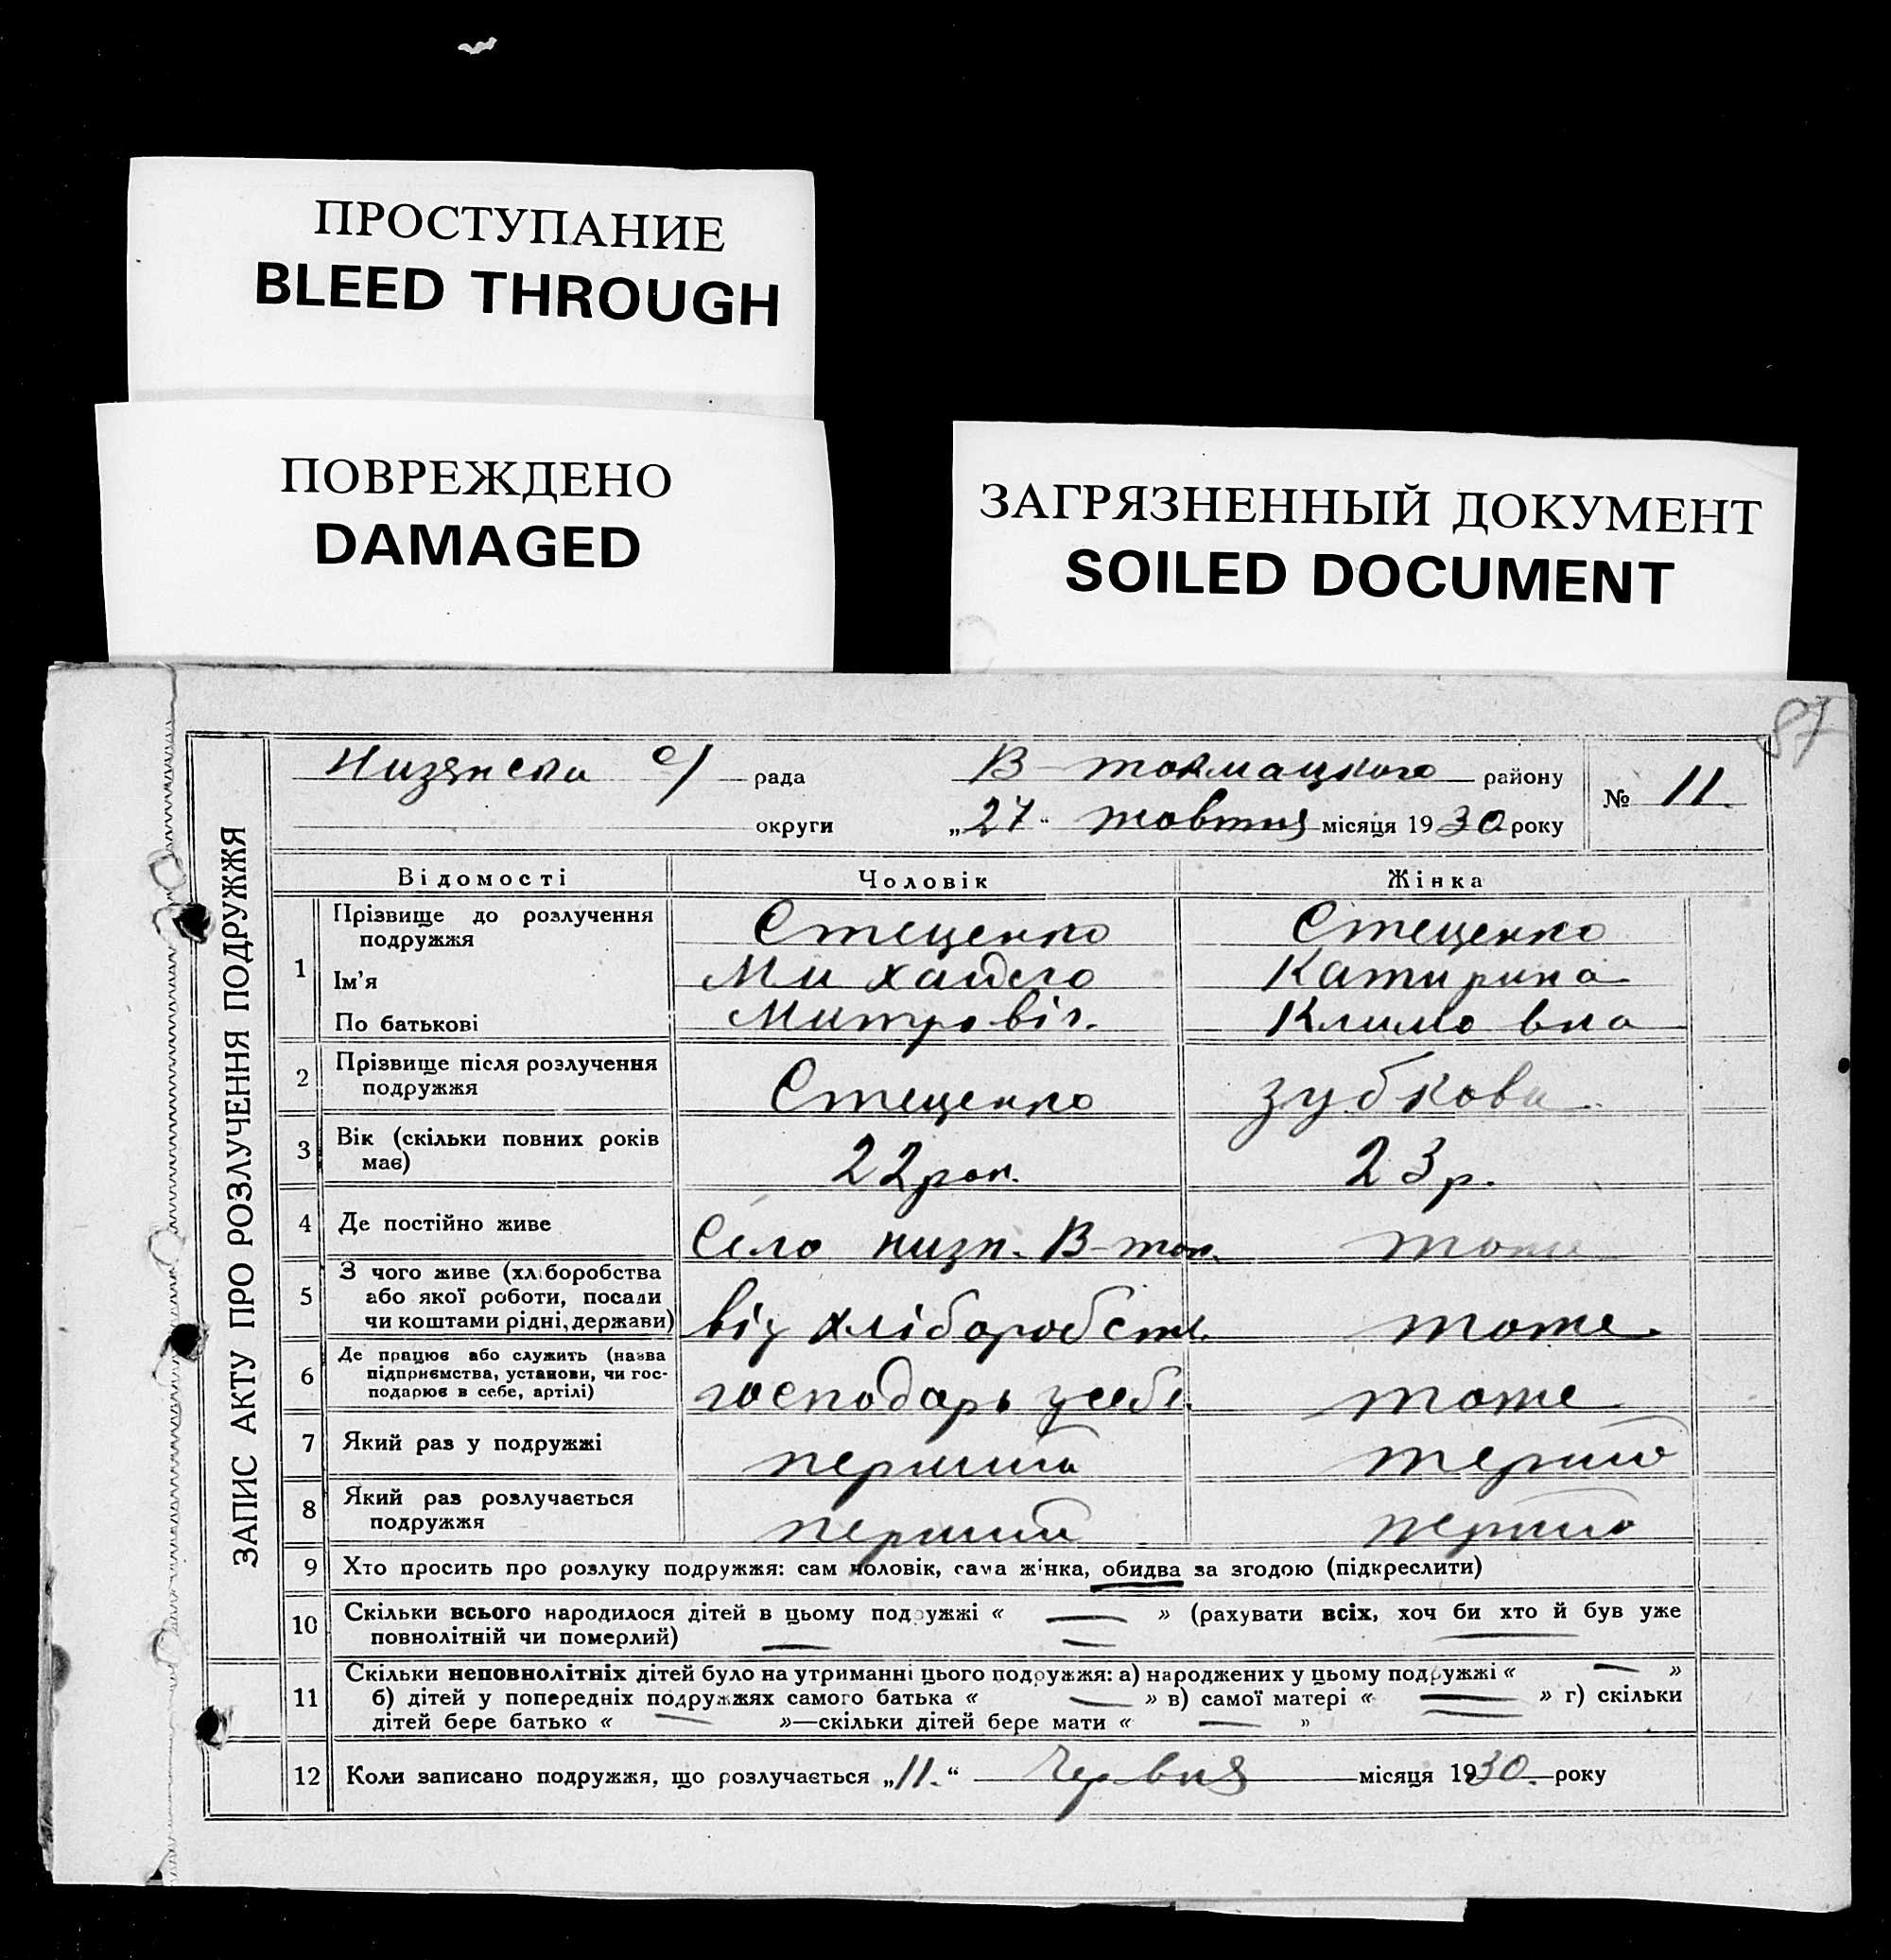 ПРОСТУПАНИЕ
BLEED THROUGH
ПОВРЕЖДЕНО
DAMAGED
ЗАГРЯЗНЕННЫЙ ДОКУМЕНТ
SOILED DOCUMENT
87
ЗАПИС АКТУ ПРО РОЗЛУЧЕННЯ ПОДРУЖЖЯ
Низянска с/ рада В-токмацкого району
№ 11.
округи „27“ жовтня місяця 1930 року
Відомості Чоловік Жінка
1 Прізвище до розлучення подружжя Стеценко Стеценко
Ім'я Михайло Катирина
По батькові Митровіч. Климовна
2 Прізвище після розлучення подружжя Стеценко Зубкова
3 Вік (скільки повних років має) 22 рок. 23 р.
4 Де постійно живе Село низн. В-ток. тоже
5 З чого живе (хліборобства або якої роботи, посади чи коштами рідні, держави) від хліборобств. тоже
6 Де працює або служить (назва підприємства, установи, чи господарює в себе, артілі) господарь у себе. тоже
7 Який раз у подружжі перший
8 Який раз розлучається подружжя перший
9 Хто просить про розлуку подружжя: сам чоловік, сама жінка, обидва за згодою (підкреслити)
10 Скільки всього народилося дітей в цьому подружжі « — » (рахувати всіх, хоч би хто й був уже
повнолітній чи померлий)
11 Скільки неповнолітніх дітей було на утриманні цього подружжя: а) народжених у цьому подружжі « — »
б) дітей у попередніх подружжях самого батька « — » в) самої матері « — » г) скільки
дітей бере батько « — »—скільки дітей бере мати « — »
12 Коли записано подружжя, що розлучається „11.“ Червня місяця 1930. року